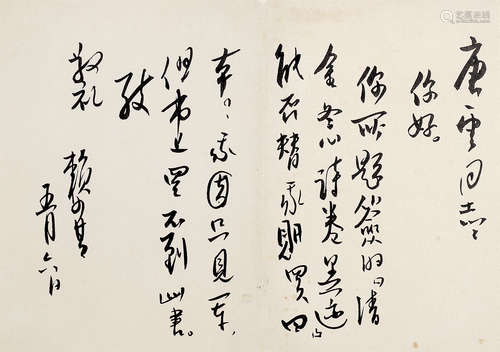 唐云同志
你好。
你所题签的“清
金冬心诗卷墨迹”
能否替我购买四
本？我因只见一本，
但市上买不到此书。
致
敬礼
赖少其
五月六日